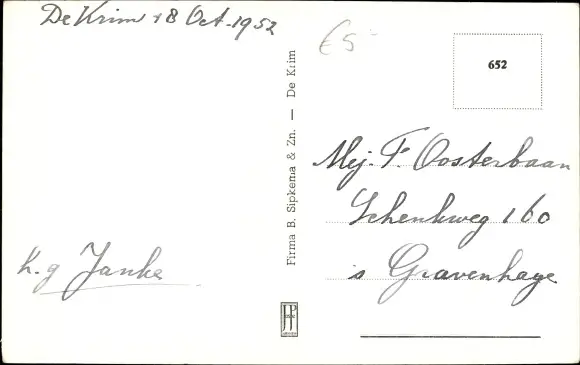 De Krim 18 Oct. 1952
€5-
652
Firma B. Sipkema & Zn. — De Krim
Mej. F. Oosterbaan
Schenkweg 160
s Gravenhage
h.g Janke